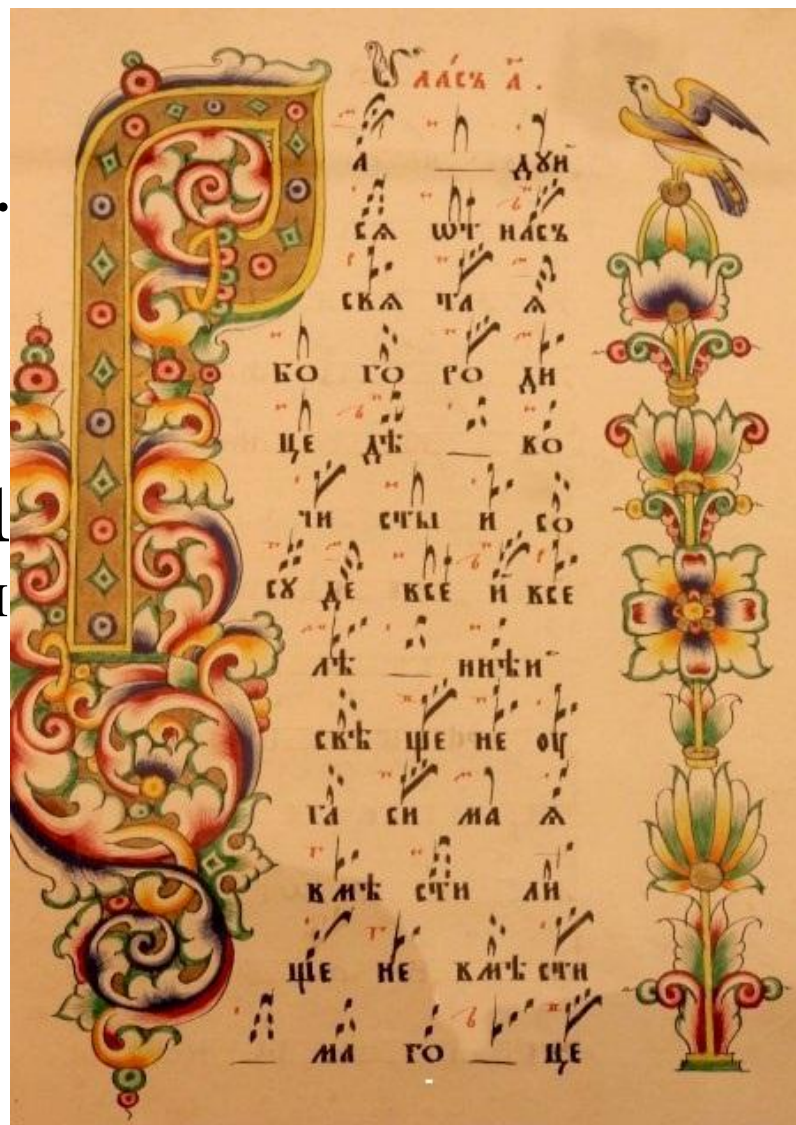 Гла́съ а҃ .
Р а — дꙋй
сѧ ѡт насъ
свѧ та ѧ
бо го ро ди
це дѣ — во
чи сты и со
сꙋ де все й все
лѣ — ннѣй
свѣ ще не оу
га си ма ѧ
вмѣ сти ли
ще не вмѣ сти
— ма го — це